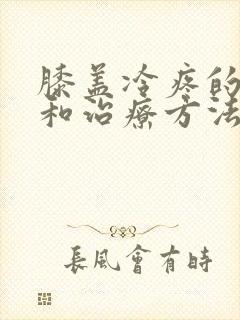 膝盖冷疼的
和治疗方法
長風會有時